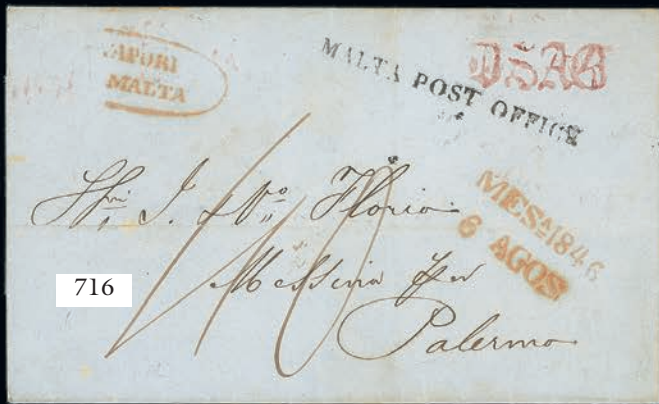 VAPORI
MALTA
MALTA POST OFFICE
Sri I. & Vo Florio
MESA 1846
6 AGOS
716
Messina per
Palermo